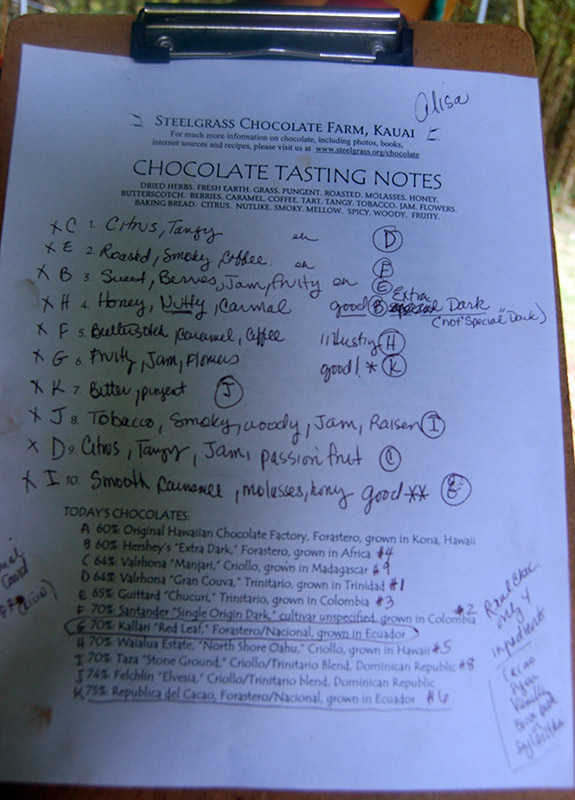 Alisa
STEELGRASS CHOCOLATE FARM, KAUAI
For much more information on chocolate, including photos, books,
internet sources and recipes, please visit us at www.steelgrass.org/chocolate
CHOCOLATE TASTING NOTES
DRIED HERBS. FRESH EARTH. GRASS. PUNGENT. ROASTED. MOLASSES. HONEY.
BUTTERSCOTCH. BERRIES. CARAMEL. COFFEE. TART. TANGY. TOBACCO. JAM. FLOWERS.
BAKING BREAD. CITRUS. NUTLIKE. SMOKY. MELLOW. SPICY. WOODY. FRUITY.
x C 1. Citrus, Tangy eh D
x E 2. Roasted, Smoky, Coffee eh F
x B 3. Sweet, Berries, Jam, fruity eh E
x H 4. Honey, Nutty, Carmal good B Extra Dark
(not "Special" Dark)
x F 5. Butterscotch, Caramel, Coffee H
x G 6. Fruity, Jam, Flowers good! * K
x K 7. Bitter, pungent J
x J 8. Tobacco, Smoky, woody, Jam, Raisen I
x D 9. Citrus, Tangy, Jam, passion fruit C
x I 10. Smooth, molasses, hony good ** G
TODAY'S CHOCOLATES:
A 60%: Original Hawaiian Chocolate Factory, Forastero, grown in Kona, Hawaii
B 60%: Hershey's "Extra Dark," Forastero, grown in Africa #4
C 64%: Valrhona "Manjari," Criollo, grown in Madagascar #9
D 64%: Valrhona "Gran Couva," Trinitario, grown in Trinidad #1
E 65%: Guittard "Chucuri," Trinitario, grown in Colombia #3
F 70%: Santander "Single Origin Dark," cultivar unspecified, grown in Colombia #2
G 70%: Kallari "Red Leaf," Forastero/Nacional, grown in Ecuador
H 70%: Waialua Estate, "North Shore Oahu," Criollo, grown in Hawaii #5
I 70%: Taza "Stone Ground," Criollo/Trinitario Blend, Dominican Republic #8
J 74%: Felchlin "Elvesia," Criollo/Trinitario blend, Dominican Republic
K 75%: Republica del Cacao, Forastero/Nacional, grown in Ecuador #6
Real Choc
only 4
ingredients
Cacao
Sugar
Vanilla
Good